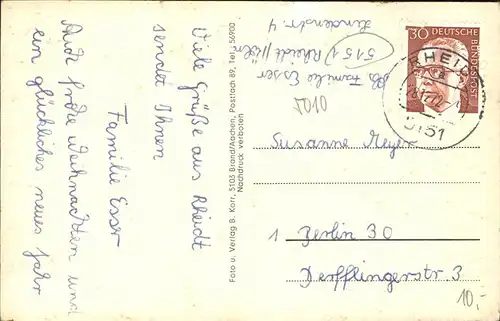 Viele Grüße aus Rheidt
sendet Ihnen
Familie Esser
Auch frohe Weihnachten und
ein glückliches neues Jahr
Foto u. Verlag B. Korr, 5105 Brand/Aachen, Postfach 89, Tel. 56900
Nachdruck verboten
Familie Esser
5151 Rheidt/Köln
Lindenstr. 4
30 DEUTSCHE
BUNDESPOST
RHEIDT
a
5151
7010
Susanne Meyer
1 Berlin 30
Derfflingerstr. 3
10,-